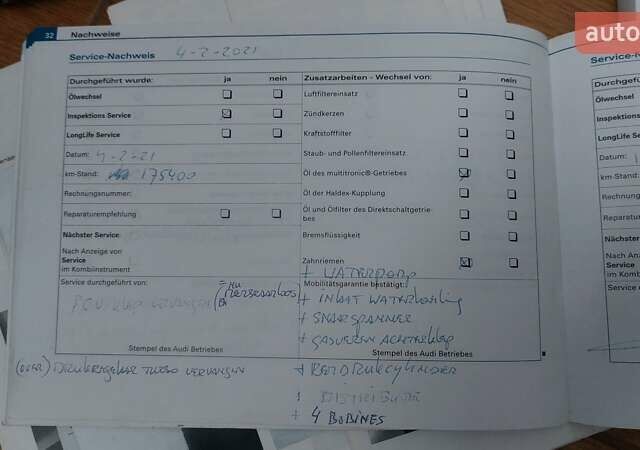 32 Nachweise
Service-Nachweis 4-2-2021
Durchgeführt wurde: ja nein
Ölwechsel
Inspektions Service
LongLife Service
Datum: 4-2-21
km-Stand: 175400
Rechnungsnummer:
Reparaturempfehlung
Nächster Service:
Nach Anzeige von
Service
im Kombiinstrument
Service durchgeführt von:
Stempel des Audi Betriebes
Zusatzarbeiten - Wechsel von: ja nein
Luftfiltereinsatz
Zündkerzen
Kraftstofffilter
Staub- und Pollenfiltereinsatz
Öl des multitronic®-Getriebes
Öl der Haldex-Kupplung
Öl und Ölfilter des Direktschaltgetrie-
bes
Bremsflüssigkeit
Zahnriemen
+ WATERPOMP
Mobilitätsgarantie bestätigt:
+ SNAARSPANNER
+ GASVEREN ACHTERKLEP
Stempel des Audi Betriebes
+ 4 BOBINES
auto
Service-N
Durchgefü
Ölwechsel
Inspektions
LongLife Se
Datum:
km-Stand:
Rechnungs
Reparature
Nächster S
Nach Anzei
Service
im Kombiin
Service dur